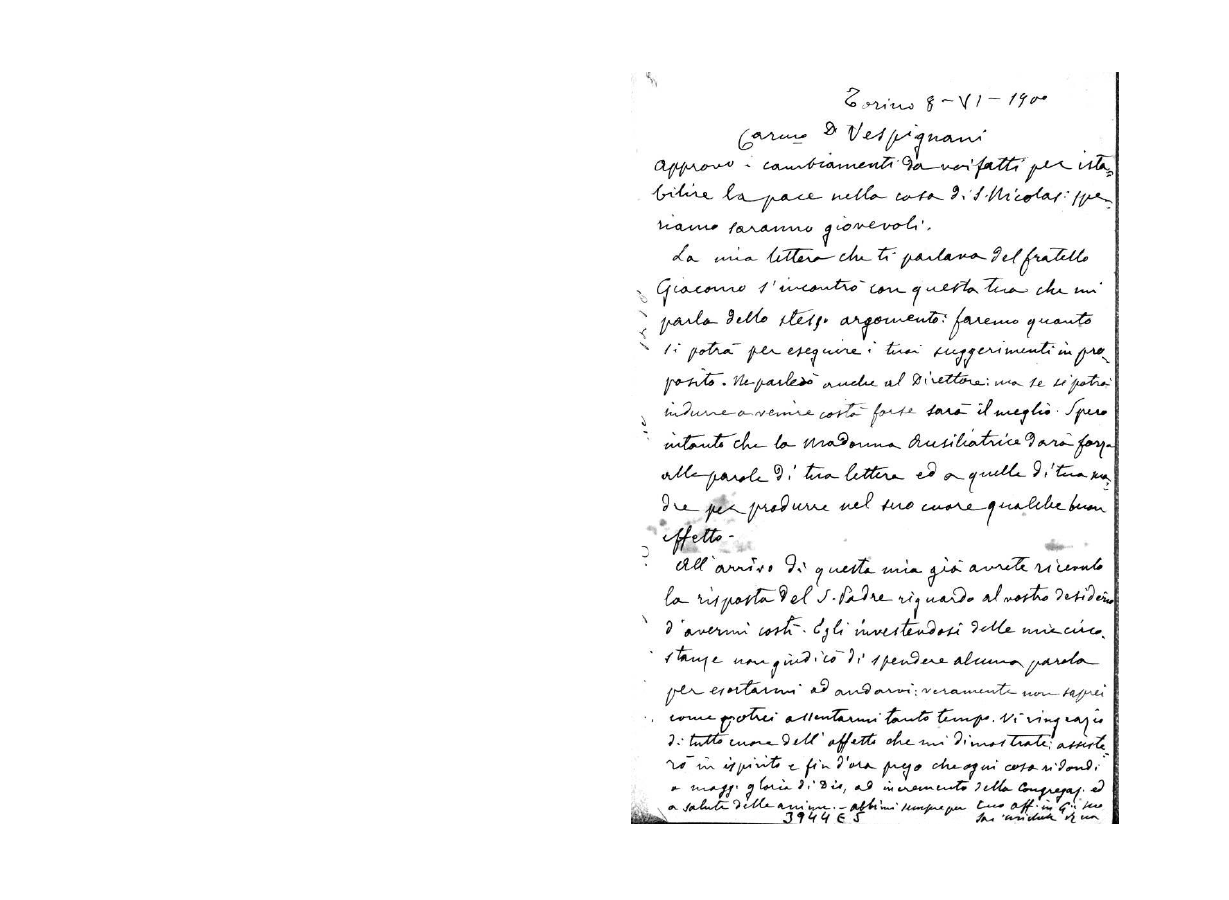 Torino 8-VI-1900
Carmo D Vespignani
approvo i cambiamenti da voi fatti per ista-
bilire la pace nella casa di S. Nicolas: spe-
riamo saranno giovevoli.
La mia lettera che ti parlava del fratello
Giacomo s'incontrò con questa tua che mi
parla dello stesso argomento: faremo quanto
si potrà per eseguire i tuoi suggerimenti in pro-
posito. Ne parlerò anche al Direttore: ma se si potrà
indurre a venire costà forse sarà il meglio. Spero
intanto che la Madonna Ausiliatrice darà forza
alle parole di tua lettera ed a quelle di tua ma-
dre per produrre nel suo cuore qualche buon
effetto.
All'arrivo di questa mia già avrete ricevuto
la risposta del S. Padre riguardo al vostro desiderio
d'avermi costì. Egli investendosi delle mie circo-
stanze non giudicò di spendere alcuna parola
per esortarmi ad andarvi: veramente non saprei
come potrei assentarmi tanto tempo. Vi ringrazio
di tutto cuore dell'affetto che mi dimostrate: assiste-
rò in ispirito e fin d'ora prego che ogni cosa ridondi
a magg. gloria di Dio, ad incremento della Congregaz. ed
a salute delle anime. - abbimi sempre per tuo aff. in G.
Sac. Michele Rua
3944 E 5